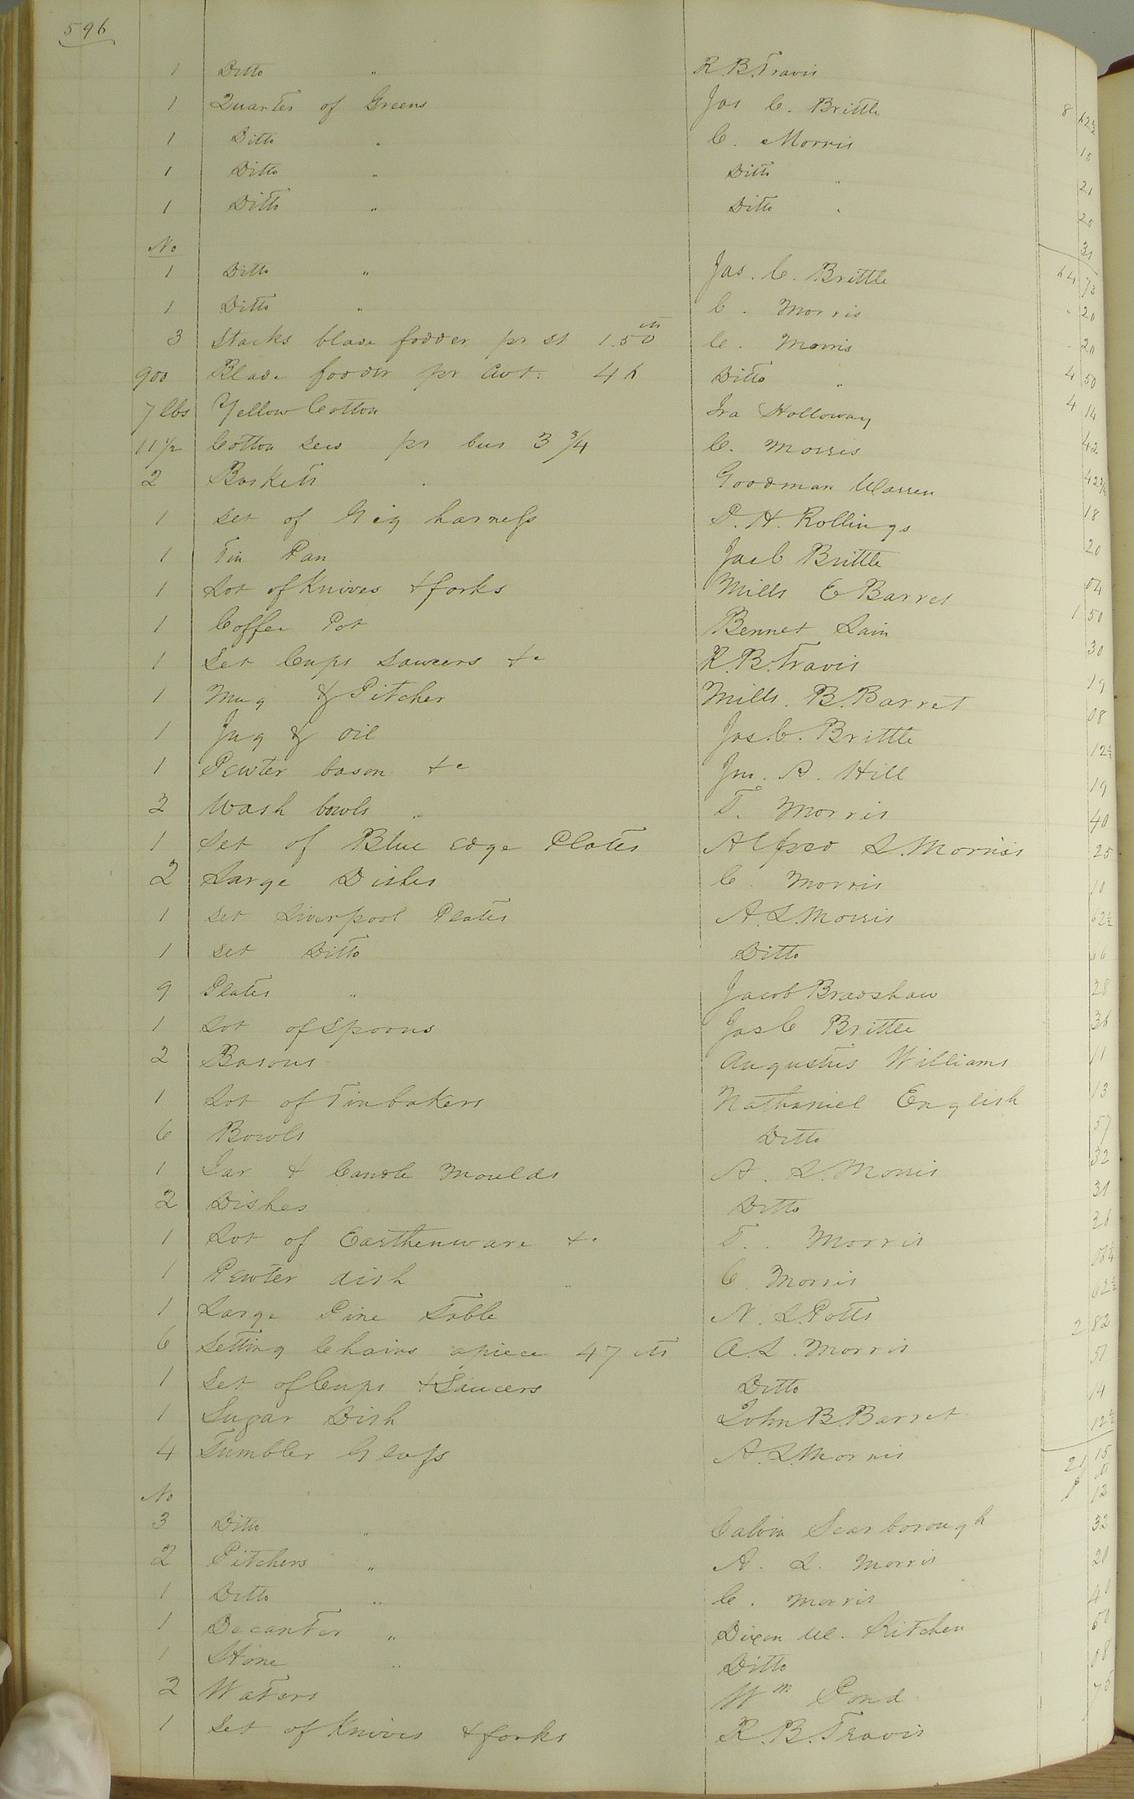 596
1 Ditto " R. B. Travis
1 Quarter of Greens Jas C. Brittle 8 62½
1 Ditto " C. Morris 15
1 Ditto " Ditto " 21
1 Ditto " Ditto " 20
No 31
1 Ditto " Jas. C. Brittle
1 Ditto " C. Morris 20
3 Stacks blade fodder pr st 1.50 cts C. Morris 20
900 Blade fodder pr Cwt. 46 Ditto " 4 50
7 lbs Yellow Cotton Ira Holloway 4 14
11½ Cotton see pr bus 3¾ C. Morris 42
2 Baskets Goodman Warren
1 Set of Gig harness D. H. Rollings 18
1 Tin Pan Jas C Brittle 20
1 Lot of Knives & forks Mills E Barret 04
1 Coffee Pot Bennet Lain 1 50
1 Set Cups Saucers &c R. B. Travis 30
1 Mug & Pitcher Mills. B. Barret 19
1 Jug & Oil Jas. C. Brittle 08
1 Pewter bason &c Jno. A. Hill 12½
2 Wash bowls T. Morris 19
1 Set of Blue edge Plates Alfred L. Morriss 40
2 Large Dishes C. Morris 25
1 Set Liverpool Plates A. L. Morris 10
1 Set Ditto Ditto 62½
9 Plates " Jacob Bradshaw
1 Lot of Spoons Jas C Brittle 28
2 Basons Augustus Williams 36
1 Lot of Tin bakers Nathaniel English 11
6 Bowls Ditto 13
1 Jar & Candle Moulds A. L. Morris 57
2 Dishes Ditto 32
1 Lot of Earthenware &c T. Morris 31
1 Pewter dish C. Morris
1 Large Pine Table N. L. Potts 62½
6 Setting Chairs apiece 47 cts A. L. Morris 2 82
1 Set of Cups & Saucers Ditto 51
1 Sugar Dish John B Barret 14
4 Tumbler Glass A. L. Morris 12½
No 15
3 Ditto " Calvin Scarborough 12
2 Pitchers " A. L. Morris 32
1 Ditto " C. Morris 20
1 Decanter " Dixon W. Kitchen
1 Stone " Ditto 50
2 Waters Wm Pond 08
1 Set of Knives & forks R. B. Travis 75